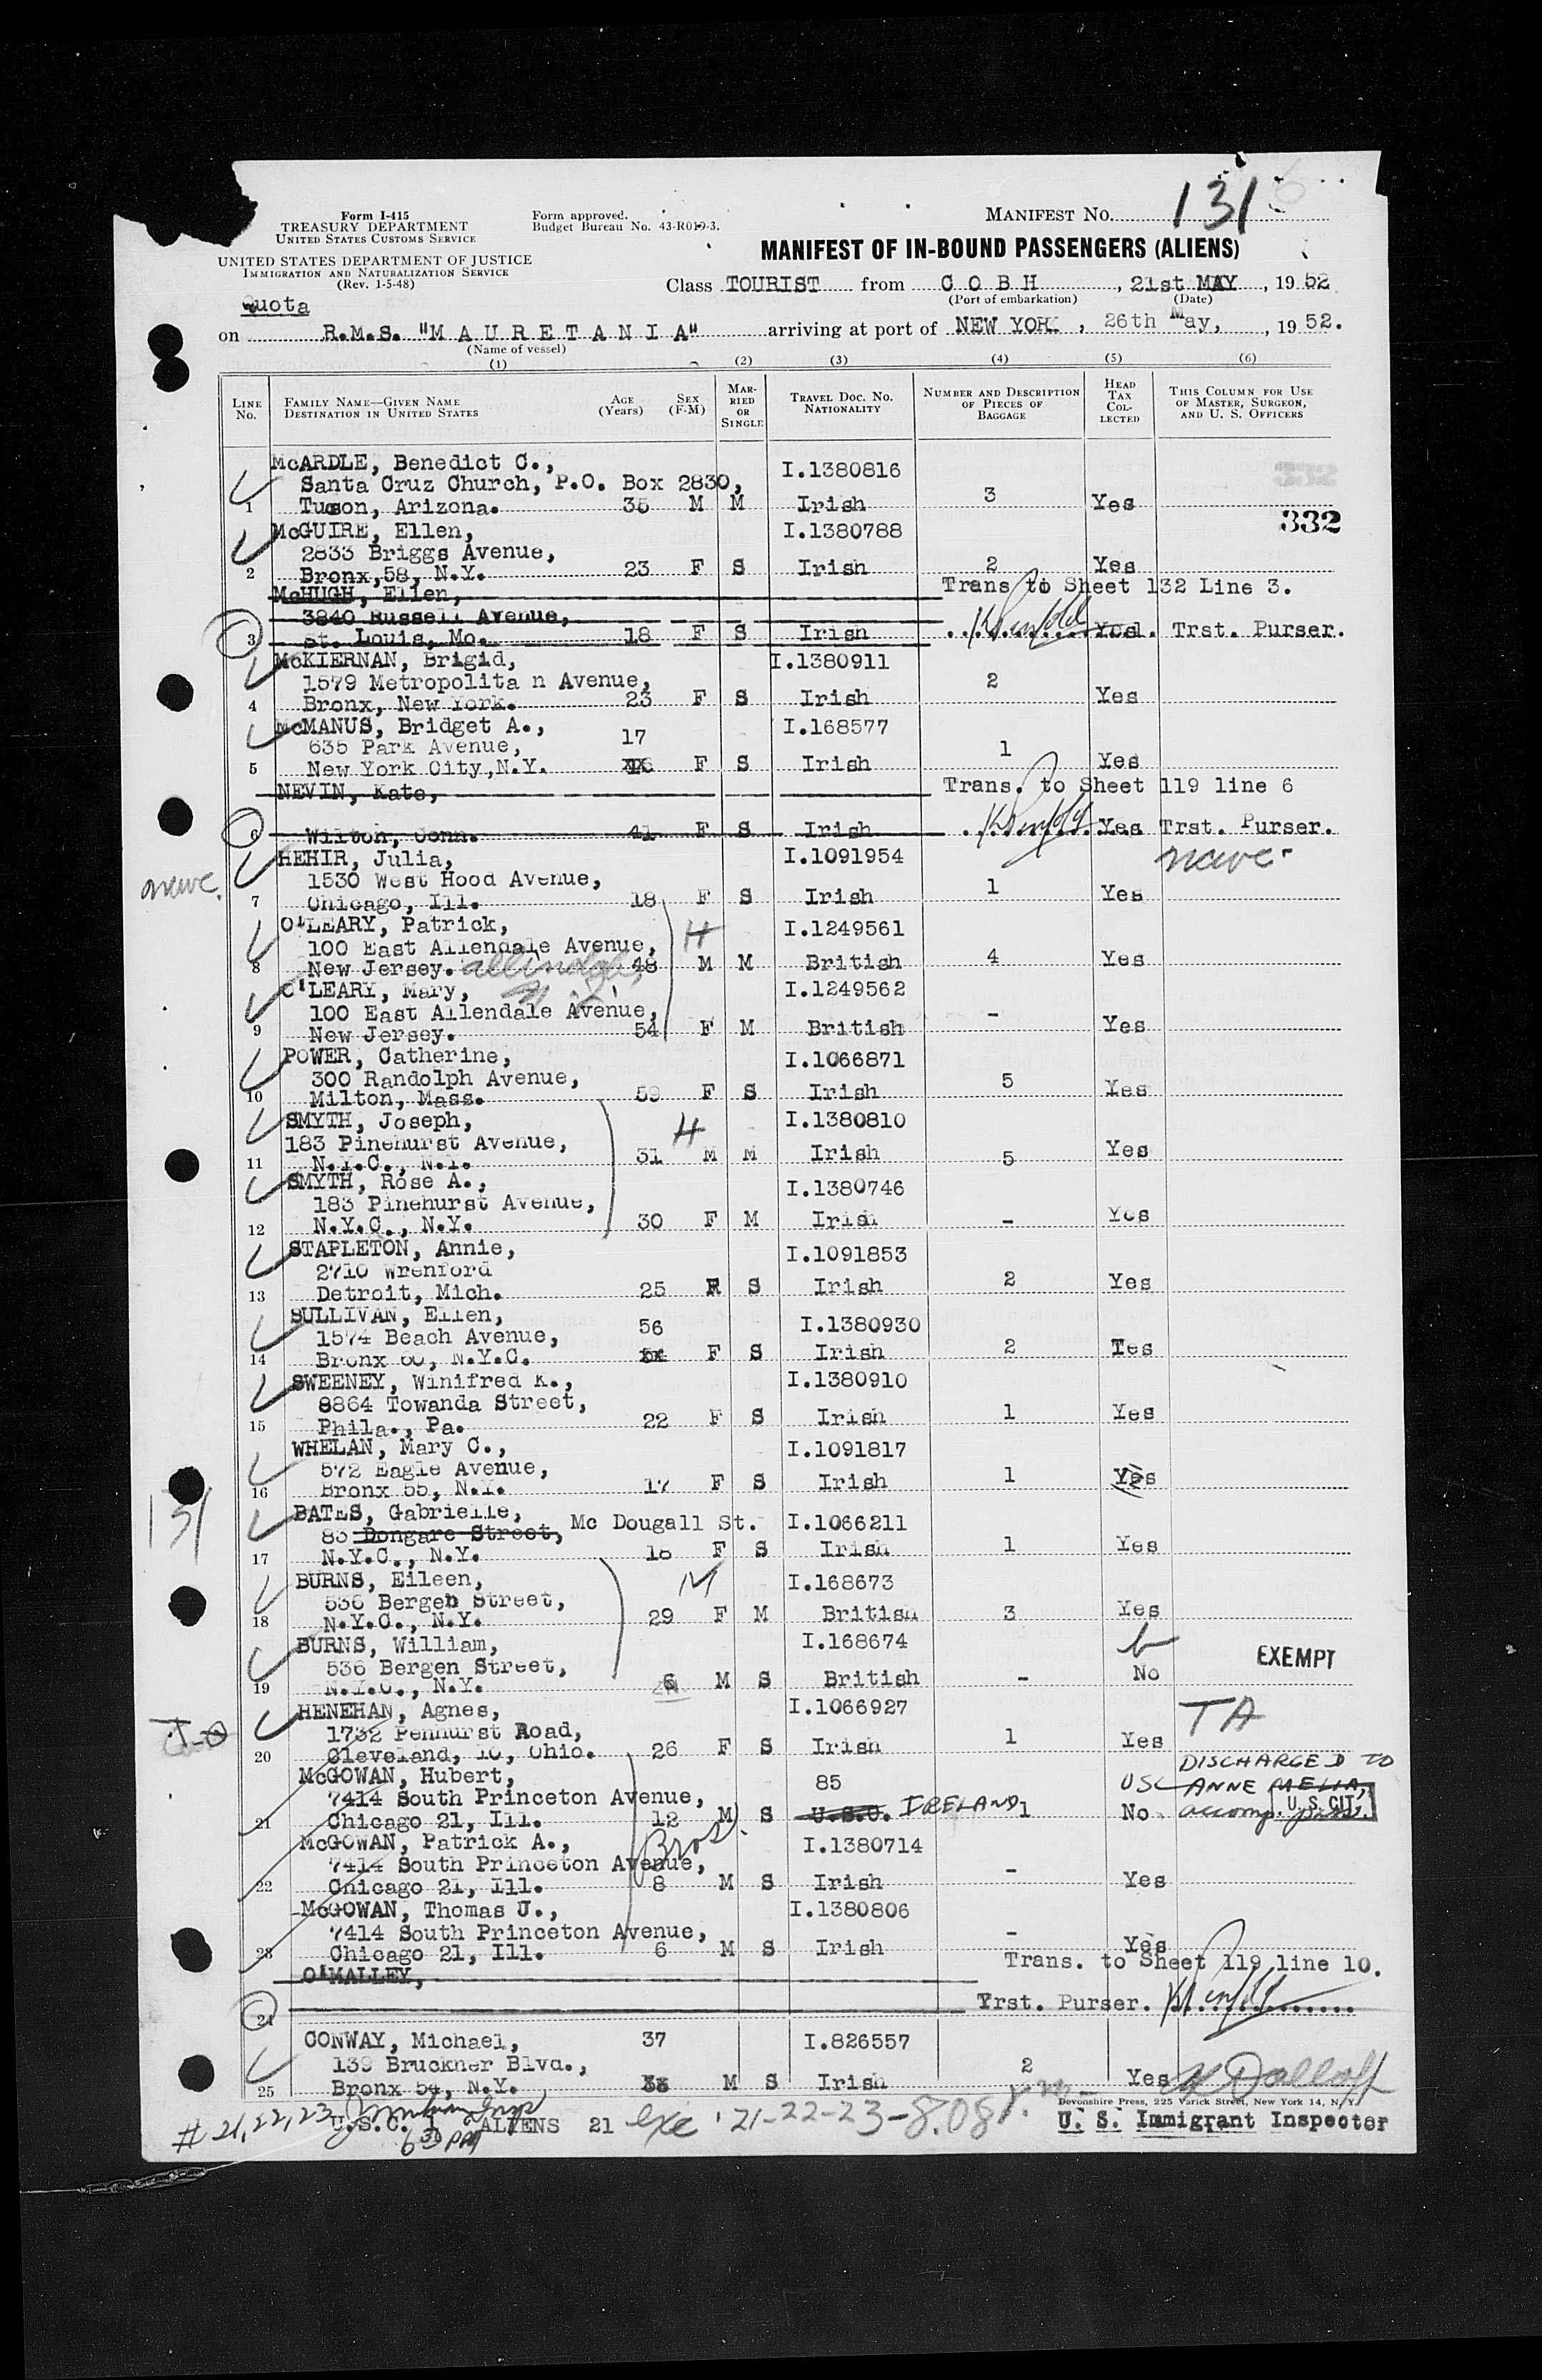 MANIFEST NO. 131
Form I-415
TREASURY DEPARTMENT
UNITED STATES CUSTOMS SERVICE
Form approved.
Budget Bureau No. 43-R019-3.
UNITED STATES DEPARTMENT OF JUSTICE
IMMIGRATION AND NATURALIZATION SERVICE
(Rev. 1-5-48)
MANIFEST OF IN-BOUND PASSENGERS (ALIENS)
Class TOURIST from C O B H, 21st MAY, 1952
(Port of embarkation) (Date)
Quota
on R.M.S. "M A U R E T A N I A" arriving at port of NEW YORK, 26th May, , 1952.
(Name of vessel)
(1) (2) (3) (4) (5) (6)
LINE No. FAMILY NAME—GIVEN NAME DESTINATION IN UNITED STATES AGE (Years) SEX (F-M) MARRIED OR SINGLE TRAVEL DOC. NO. NATIONALITY NUMBER AND DESCRIPTION OF PIECES OF BAGGAGE HEAD TAX COLLECTED THIS COLUMN FOR USE OF MASTER, SURGEON, AND U. S. OFFICERS
McARDLE, Benedict C., I.1380816 332
Santa Cruz Church, P.O. Box 2830,
1 Tucson, Arizona. 35 M M Irish 3 Yes
McGUIRE, Ellen, I.1380788 332
2833 Briggs Avenue,
2 Bronx,58, N.Y. 23 F S Irish 2 Yes
McHUGH, Ellen, Trans to Sheet 132 Line 3.
3840 Russell Avenue,
3 St. Louis, Mo. 18 F S Irish Yes Trst. Purser.
McKIERNAN, Brigid, I.1380911
1579 Metropolita n Avenue,
4 Bronx, New York. 23 F S Irish 2 Yes
McMANUS, Bridget A., I.168577
635 Park Avenue, 17
5 New York City,N.Y. F S Irish 1 Yes
NEVIN, Kate, Trans. to Sheet 119 line 6
6 Wilton, Conn. 41 F S Irish Yes Trst. Purser.
HEHIR, Julia, I.1091954
1530 West Hood Avenue,
7 Chicago, Ill. 18 F S Irish 1 Yes
O'LEARY, Patrick, H I.1249561
100 East Allendale Avenue,
8 New Jersey. 48 M M British 4 Yes
O'LEARY, Mary, I.1249562
100 East Allendale Avenue,
9 New Jersey. 54 F M British - Yes
POWER, Catherine, I.1066871
300 Randolph Avenue,
10 Milton, Mass. 59 F S Irish 5 Yes
SMYTH, Joseph, H I.1380810
183 Pinehurst Avenue,
11 N.Y.C., N.Y. 31 M M Irish 5 Yes
SMYTH, Rose A., I.1380746
183 Pinehurst Avenue,
12 N.Y.C., N.Y. 30 F M Irish - Yes
STAPLETON, Annie, I.1091853
2710 Wrenford
13 Detroit, Mich. 25 F S Irish 2 Yes
SULLIVAN, Ellen, I.1380930
1574 Beach Avenue, 56
14 Bronx 60, N.Y.C. F S Irish 2 Tes
SWEENEY, Winifred K., I.1380910
8864 Towanda Street,
15 Phila., Pa. 22 F S Irish 1 Yes
WHELAN, Mary C., I.1091817
572 Eagle Avenue,
16 Bronx 55, N.Y. 17 F S Irish 1 Yes
131
BATES, Gabrielle, I.1066211
83 Dongare Street, Mc Dougall St.
17 N.Y.C., N.Y. 18 F S Irish 1 Yes
BURNS, Eileen, M I.168673
536 Bergen Street,
18 N.Y.C., N.Y. 29 F M British 3 Yes
BURNS, William, I.168674
536 Bergen Street, EXEMPT
19 N.Y.C., N.Y. 6 M S British - No
HENEHAN, Agnes, I.1066927 TA
1732 Penhurst Road,
20 Cleveland, 10, Ohio. 26 F S Irish 1 Yes
McGOWAN, Hubert, 85 USC DISCHARGED TO
7414 South Princeton Avenue, ANNE MELIA,
21 Chicago 21, Ill. 12 M S U.S.C. IRELAND 1 No accomp. U.S. CIT.
McGOWAN, Patrick A., Bros. I.1380714
7414 South Princeton Avenue,
22 Chicago 21, Ill. 8 M S Irish - Yes
McGOWAN, Thomas J., I.1380806
7414 South Princeton Avenue,
23 Chicago 21, Ill. 6 M S Irish - Yes
O'MALLEY, Trans. to Sheet 119 line 10.
24 Trst. Purser.
CONWAY, Michael, 37 I.826557
139 Bruckner Blvd.,
25 Bronx 54, N.Y. M S Irish 2 Yes
Devonshire Press, 225 Varick Street, New York 14, N. Y.
# 21,22,23 U.S.C. 1 ALIENS 21 exc 21-22-23-8.08 p.m. U. S. Immigrant Inspector
6 30 PM